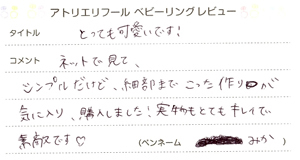 アトリエリフール ベビーリングレビュー
タイトル とっても可愛いです!
コメント ネットで見て、
シンプルだけど、細部までこった作りが
気に入り、購入しました!実物もとてもキレイで
素敵です♡
(ペンネーム みか)